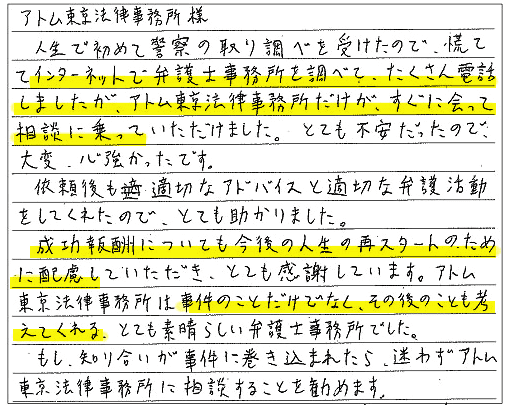 アトム東京法律事務所様
人生で初めて警察の取り調べを受けたので、慌て
てインターネットで弁護士事務所を調べて、たくさん電話
しましたが、アトム東京法律事務所だけが、すぐに会って
相談に乗っていただけました。とても不安だったので、
大変、心強かったです。
依頼後も適切なアドバイスと適切な弁護活動
をしてくれたので、とても助かりました。
成功報酬についても今後の人生の再スタートのため
に配慮していただき、とても感謝しています。アトム
東京法律事務所は事件のことだけでなく、その後のことも考
えてくれる、とても素晴らしい弁護士事務所でした。
もし、知り合いが事件に巻き込まれたら、迷わずアトム
東京法律事務所に相談することを勧めます。